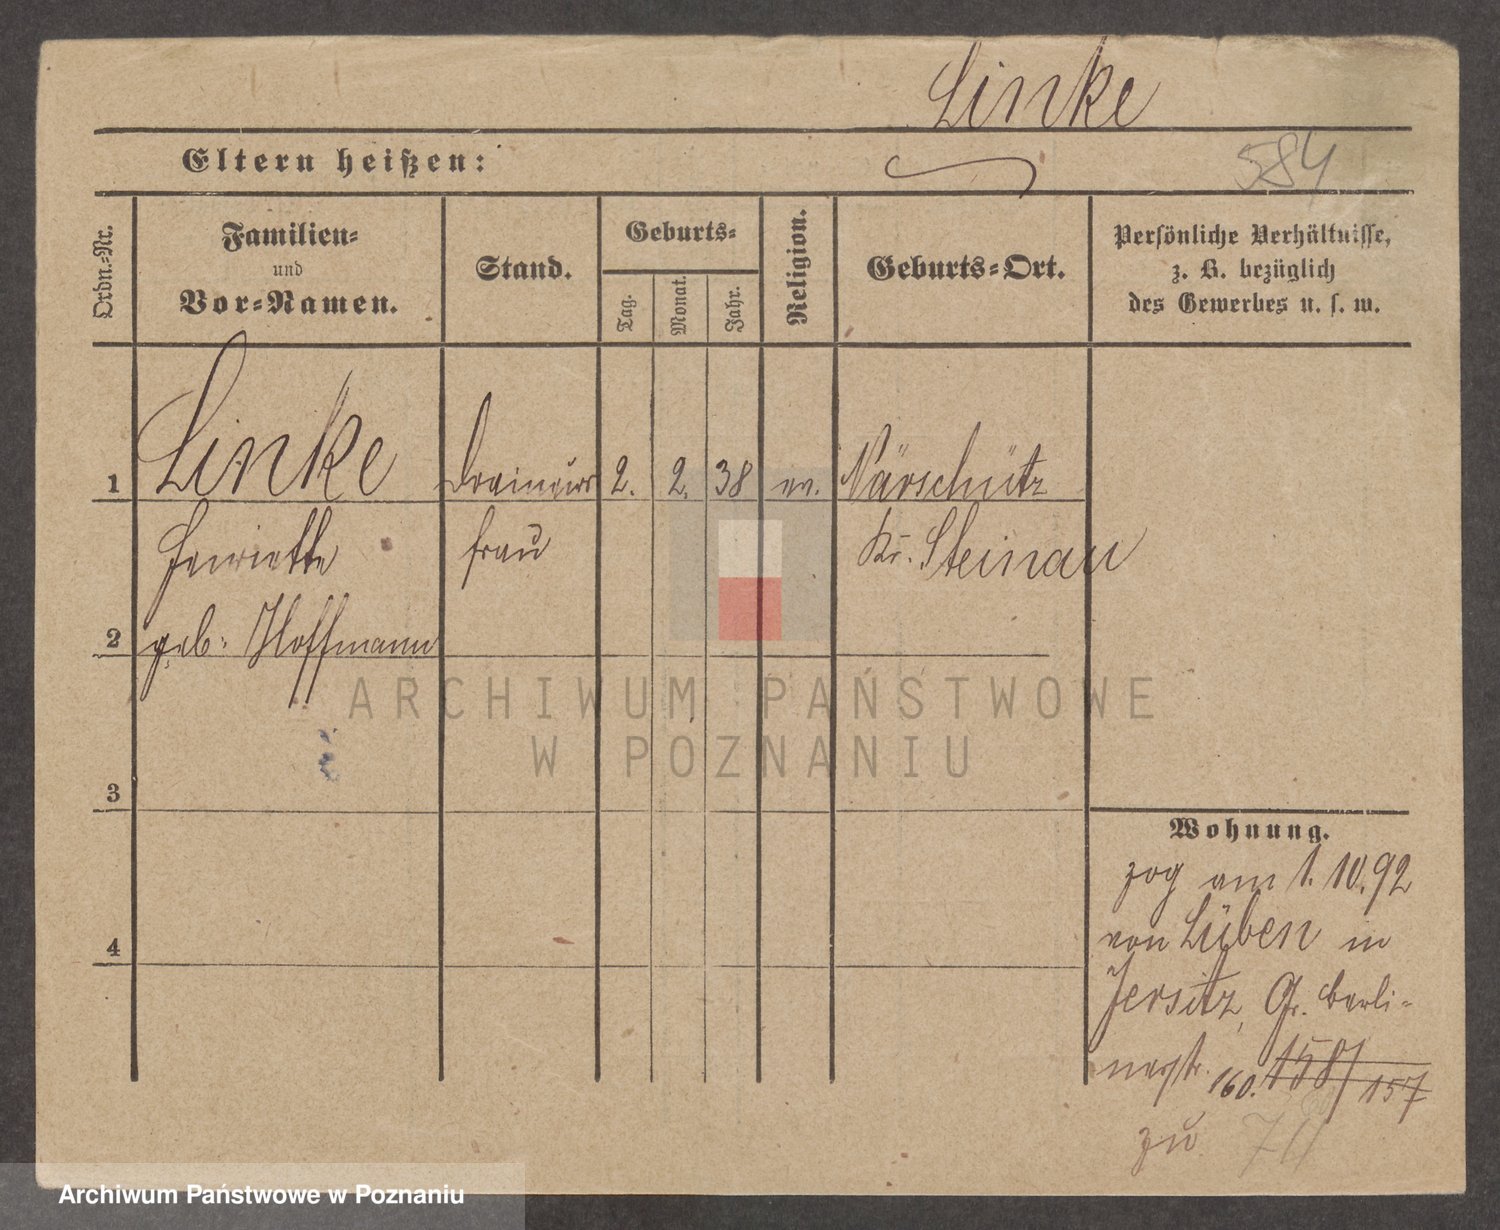 Linke
Eltern heißen:
584
Ordn.-Nr.
Familien-
und
Vor-Namen.
Stand.
Geburts-
Tag.
Monat.
Jahr.
Religion.
Geburts-Ort.
Persönliche Verhältnisse,
z. B. bezüglich
des Gewerbes u. s. w.
1 Linke 2. 2. 38 ev. Närschütz
Henriette frau Kr. Steinau
2 geb. Hoffmann
ARCHIWUM PAŃSTWOWE
W POZNANIU
3
Wohnung.
zog am 1. 10. 92
von Lüben in
4
Jersitz, Gr. Berli-
nerstr. 160. 158/157
zu
Archiwum Państwowe w Poznaniu